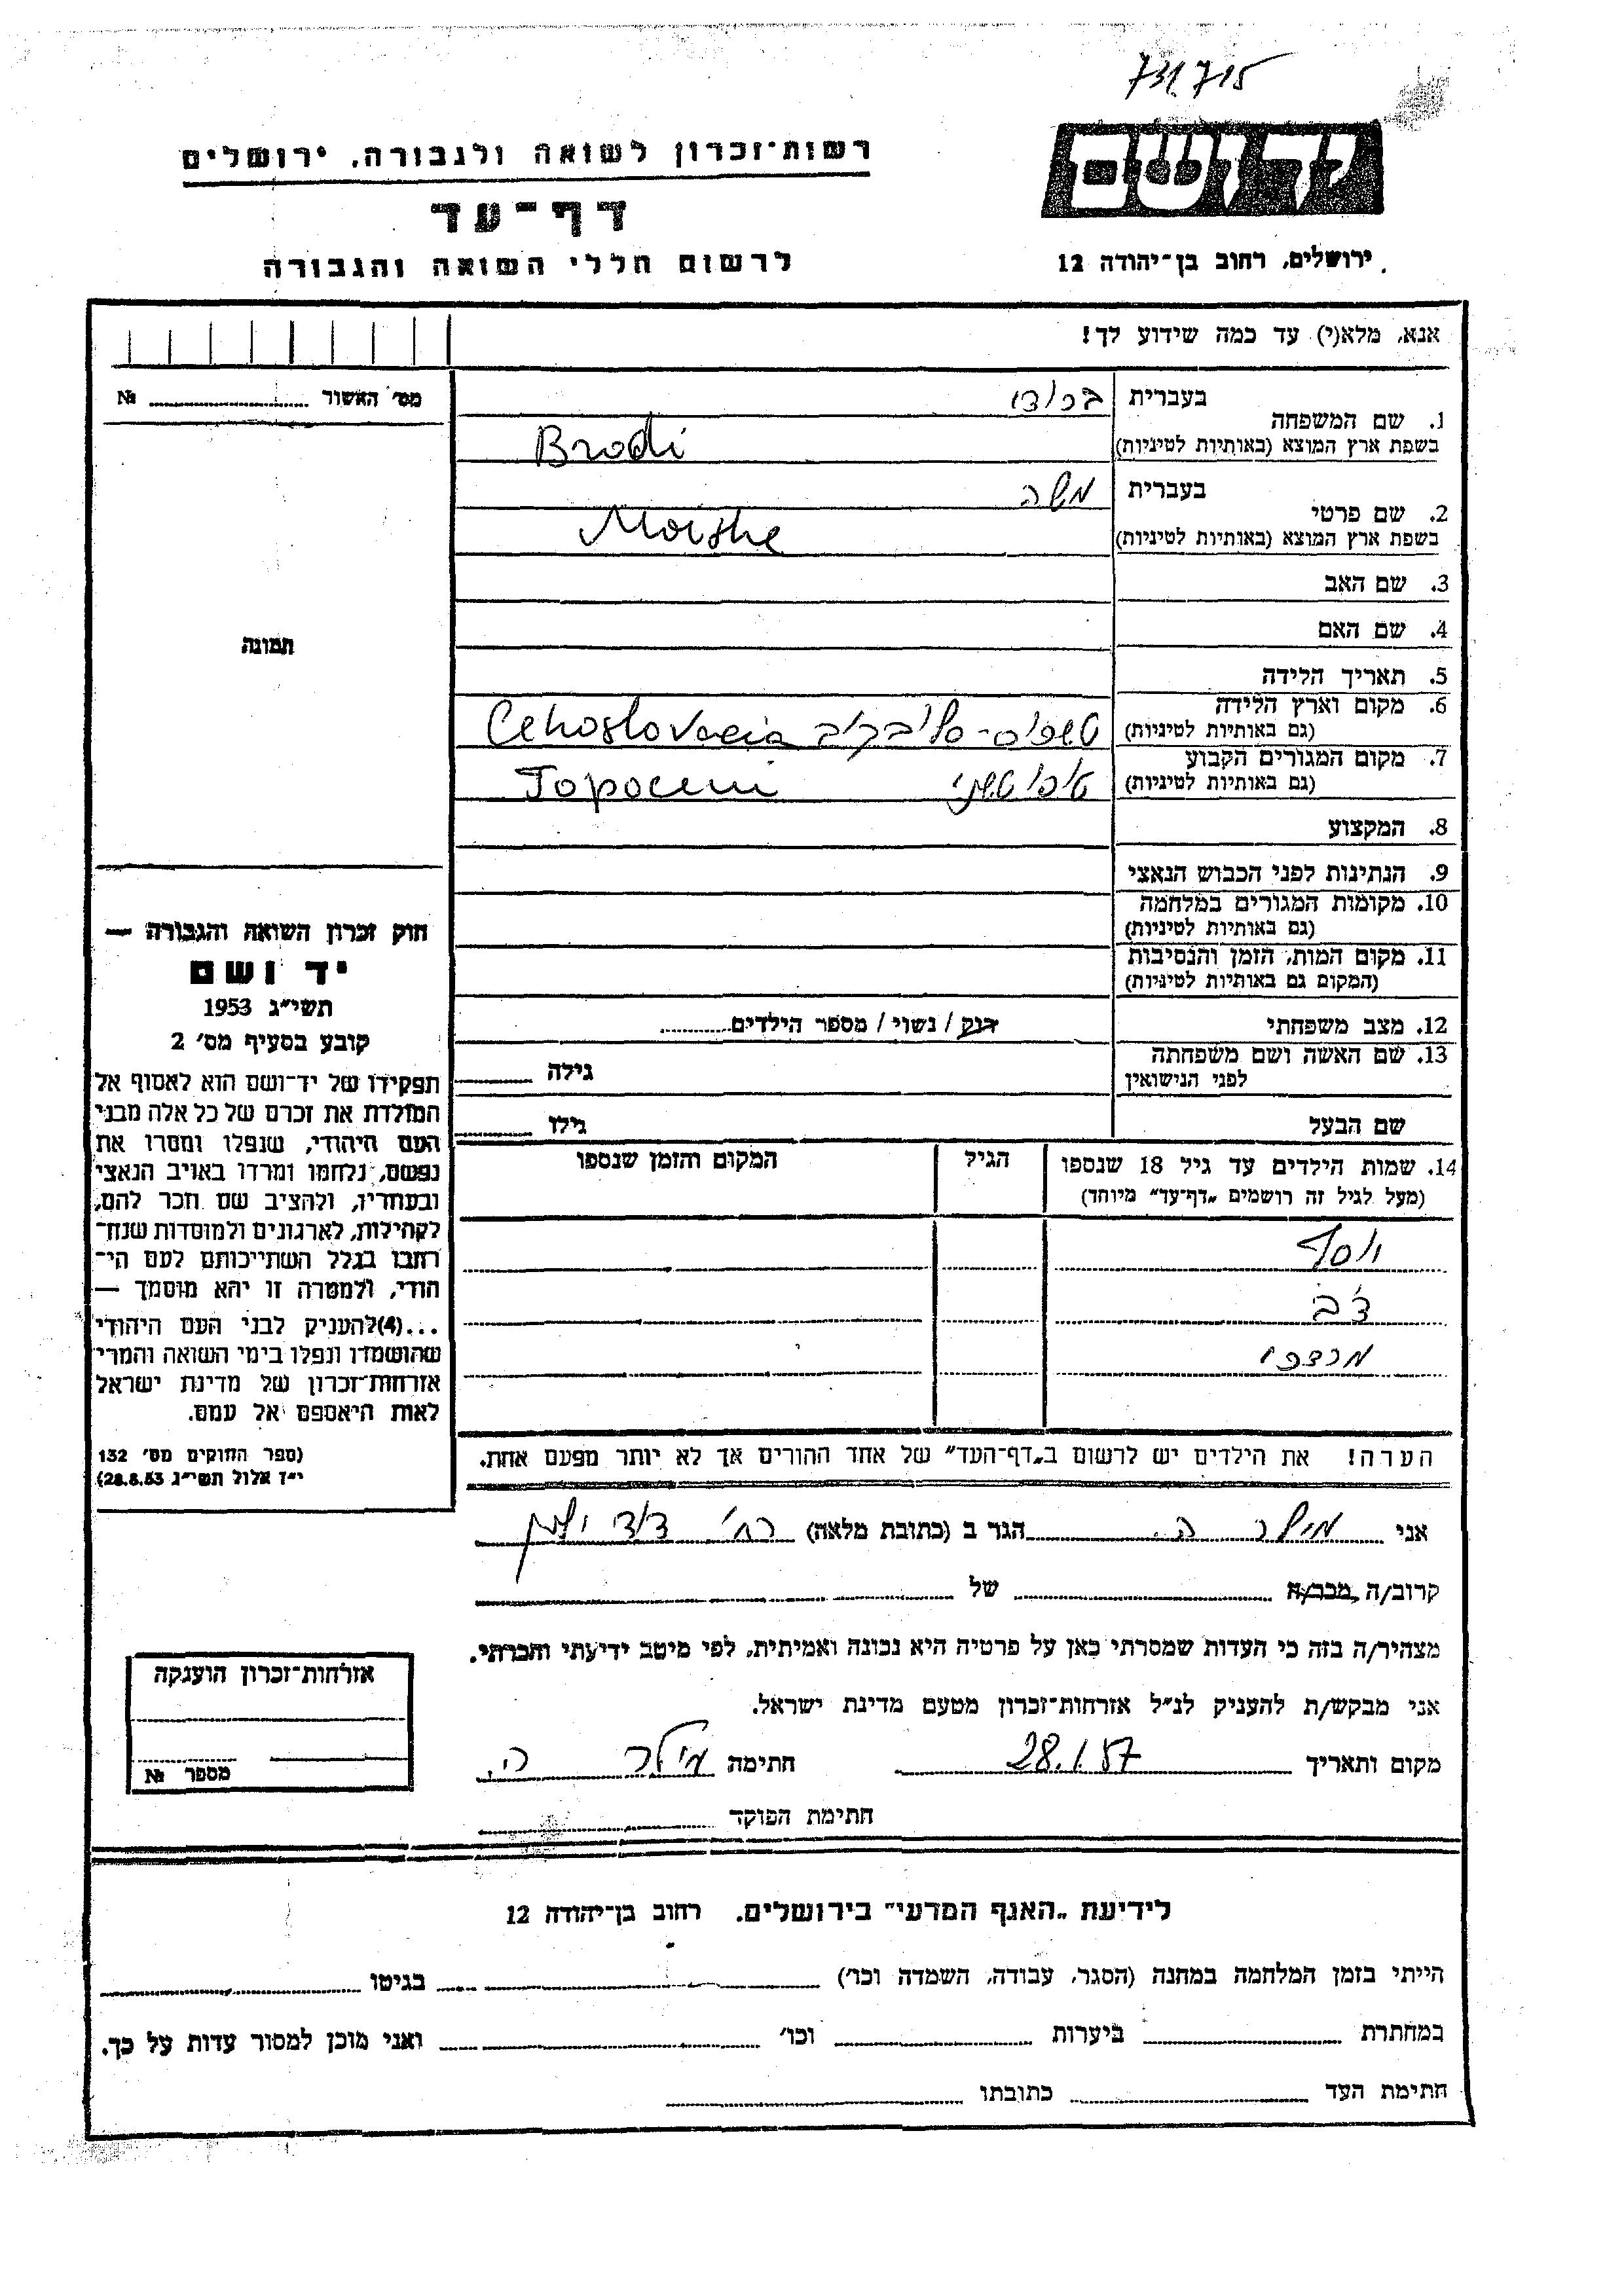 731715
יד ושם
רשות־זכרון לשואה ולגבורה, ירושלים
דף־עד
לרשום חללי השואה והגבורה
ירושלים, רחוב בן־יהודה 12
אנא, מלא(י) עד כמה שידוע לך!
מס׳ האשור № 
1. שם המשפחה
בעברית
בשפת ארץ המוצא (באותיות לטיניות)
Brodi
2. שם פרטי
בעברית משה
בשפת ארץ המוצא (באותיות לטיניות)
Moishe
3. שם האב
4. שם האם
5. תאריך הלידה
6. מקום וארץ הלידה
(גם באותיות לטיניות)
Cehoslovacia
7. מקום המגורים הקבוע
(גם באותיות לטיניות)
Topoceni
8. המקצוע
9. הנתינות לפני הכבוש הנאצי
10. מקומות המגורים במלחמה
(גם באותיות לטיניות)
11. מקום המות, הזמן והנסיבות
(המקום גם באותיות לטיניות)
12. מצב משפחתי רוק / נשוי / מספר הילדים
13. שם האשה ושם משפחתה
לפני הנישואין גילה
שם הבעל גילו
14. שמות הילדים עד גיל 18 שנספו הגיל המקום והזמן שנספו
(מעל לגיל זה רושמים „דף־עד״ מיוחד)
יוסף
הערה! את הילדים יש לרשום ב„דף־העד״ של אחד ההורים אך לא יותר מפעם אחת.
תמונה
חוק זכרון השואה והגבורה —
יד ושם
תשי״ג 1953
קובע בסעיף מס׳ 2
תפקידו של יד־ושם הוא לאסוף אל
המולדת את זכרם של כל אלה מבני
העם היהודי, שנפלו ומסרו את
נפשם, נלחמו ומרדו באויב הנאצי
ובעוזריו, ולהציב שם וזכר להם,
לקהילות, לארגונים ולמוסדות שנח־
רבו בגלל השתייכותם לעם הי־
הודי, ולמטרה זו יהא מוסמך —
...(4)להעניק לבני העם היהודי
שהושמדו ונפלו בימי השואה והמרי
אזרחות־זכרון של מדינת ישראל
לאות היאספם אל עמם.
(ספר החוקים מס׳ 132
י״ז אלול תשי״ג 28.8.53)
אני מילר ה. הגר ב (כתובת מלאה) רח׳
קרוב/ה מכר/ה של
מצהיר/ה בזה כי העדות שמסרתי כאן על פרטיה היא נכונה ואמיתית, לפי מיטב ידיעתי והכרתי.
אני מבקש/ת להעניק לנ״ל אזרחות־זכרון מטעם מדינת ישראל.
מקום ותאריך 28.1.57 חתימה מילר ה.
חתימת הפוקד
אזרחות־זכרון הוענקה
מספר №
לידיעת „האגף המדעי״ בירושלים, רחוב בן־יהודה 12
הייתי בזמן המלחמה במחנה (הסגר, עבודה, השמדה וכו׳) בגיטו
במחתרת ביערות וכו׳ ואני מוכן למסור עדות על כך.
חתימת העד כתובתו